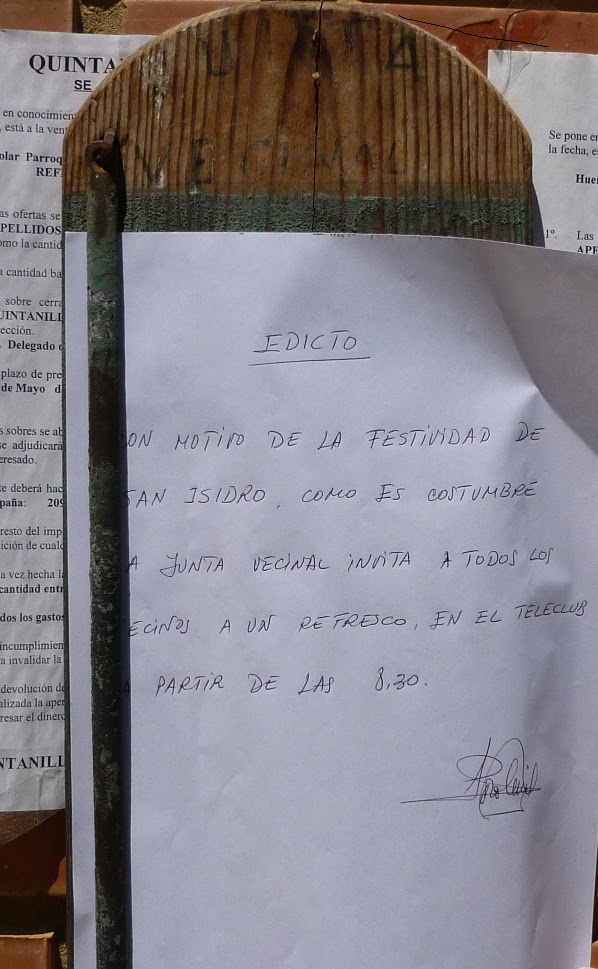 QUINTA
SE
en conocimien
, está a la vent
olar Parroq
REF
as ofertas se
PELLIDOS
omo la cantid
a cantidad ba
sobre cerra
UINTANILL
ección.
Delegado
plazo de pre
de Mayo d
s sobres se ab
se adjudicará
eresado.
e deberá hac
paña: 209
resto del imp
ición de cualq
a vez hecha l
cantidad entr
dos los gastos
incumplimien
a invalidar la
devolución de
alizada la aper
resar el dinero
NTANILL
JUNTA
VECINAL
EDICTO
CON MOTIVO DE LA FESTIVIDAD DE
SAN ISIDRO, COMO ES COSTUMBRE
A JUNTA VECINAL INVITA A TODOS LOS
ECINOS A UN REFRESCO, EN EL TELECLUB
A PARTIR DE LAS 8,30.
Se pone en
la fecha, e
Huer
1º. Las
APE